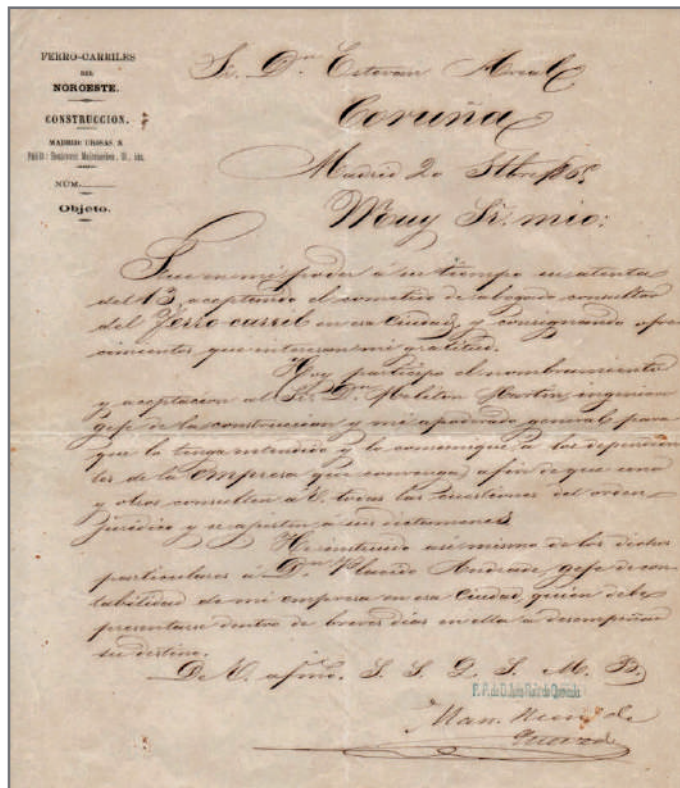 FERRO-CARRILES
DEL
NOROESTE.
CONSTRUCCION.
MADRID: UROSAS, 8
NÚM.
Objeto.
Sr. Dn. Estevan Areal
Coruña
Madrid 20 Stbre /65
Muy Sr. mio:
Fue en mi poder á su tiempo su atenta
del 13, aceptando el cometido de abogado consultor
del Ferro-carril en esa Ciudad, y consignando ofre
cimientos que interesan mi gratitud.
Hoy participo el nombramiento
y aceptacion al Sr. Dn. Meliton Martin, ingeniero
gefe de la construccion y mi apoderado general para
que lo tenga entendido y lo comunique á los dependien
tes de la empresa que convenga, afin de que unos
y otros consulten á V. todas las cuestiones del orden
juridico y se ajusten a sus dictamenes.
He instruido asi mismo de los dichos
particulares á Dn. Placido Andrade gefe de con
tabilidad de mi empresa en esa Ciudad, quien debe
presentarse dentro de breves dias en ella a desempeñar
su destino.
De V. afmo. S. S. Q. S. M. B.
P. P. de D. Juan Ruiz de Quevedo
Man. de
Quevedo